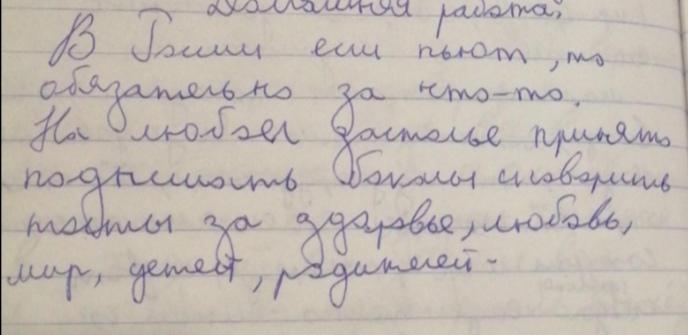 Домашняя работа.
В Грзии если пьют, то
обязательно за что-то.
На любом застолье принято
поднимать бокалы и говорить
тосты за здоровье, любовь,
мир, детей, родителей-